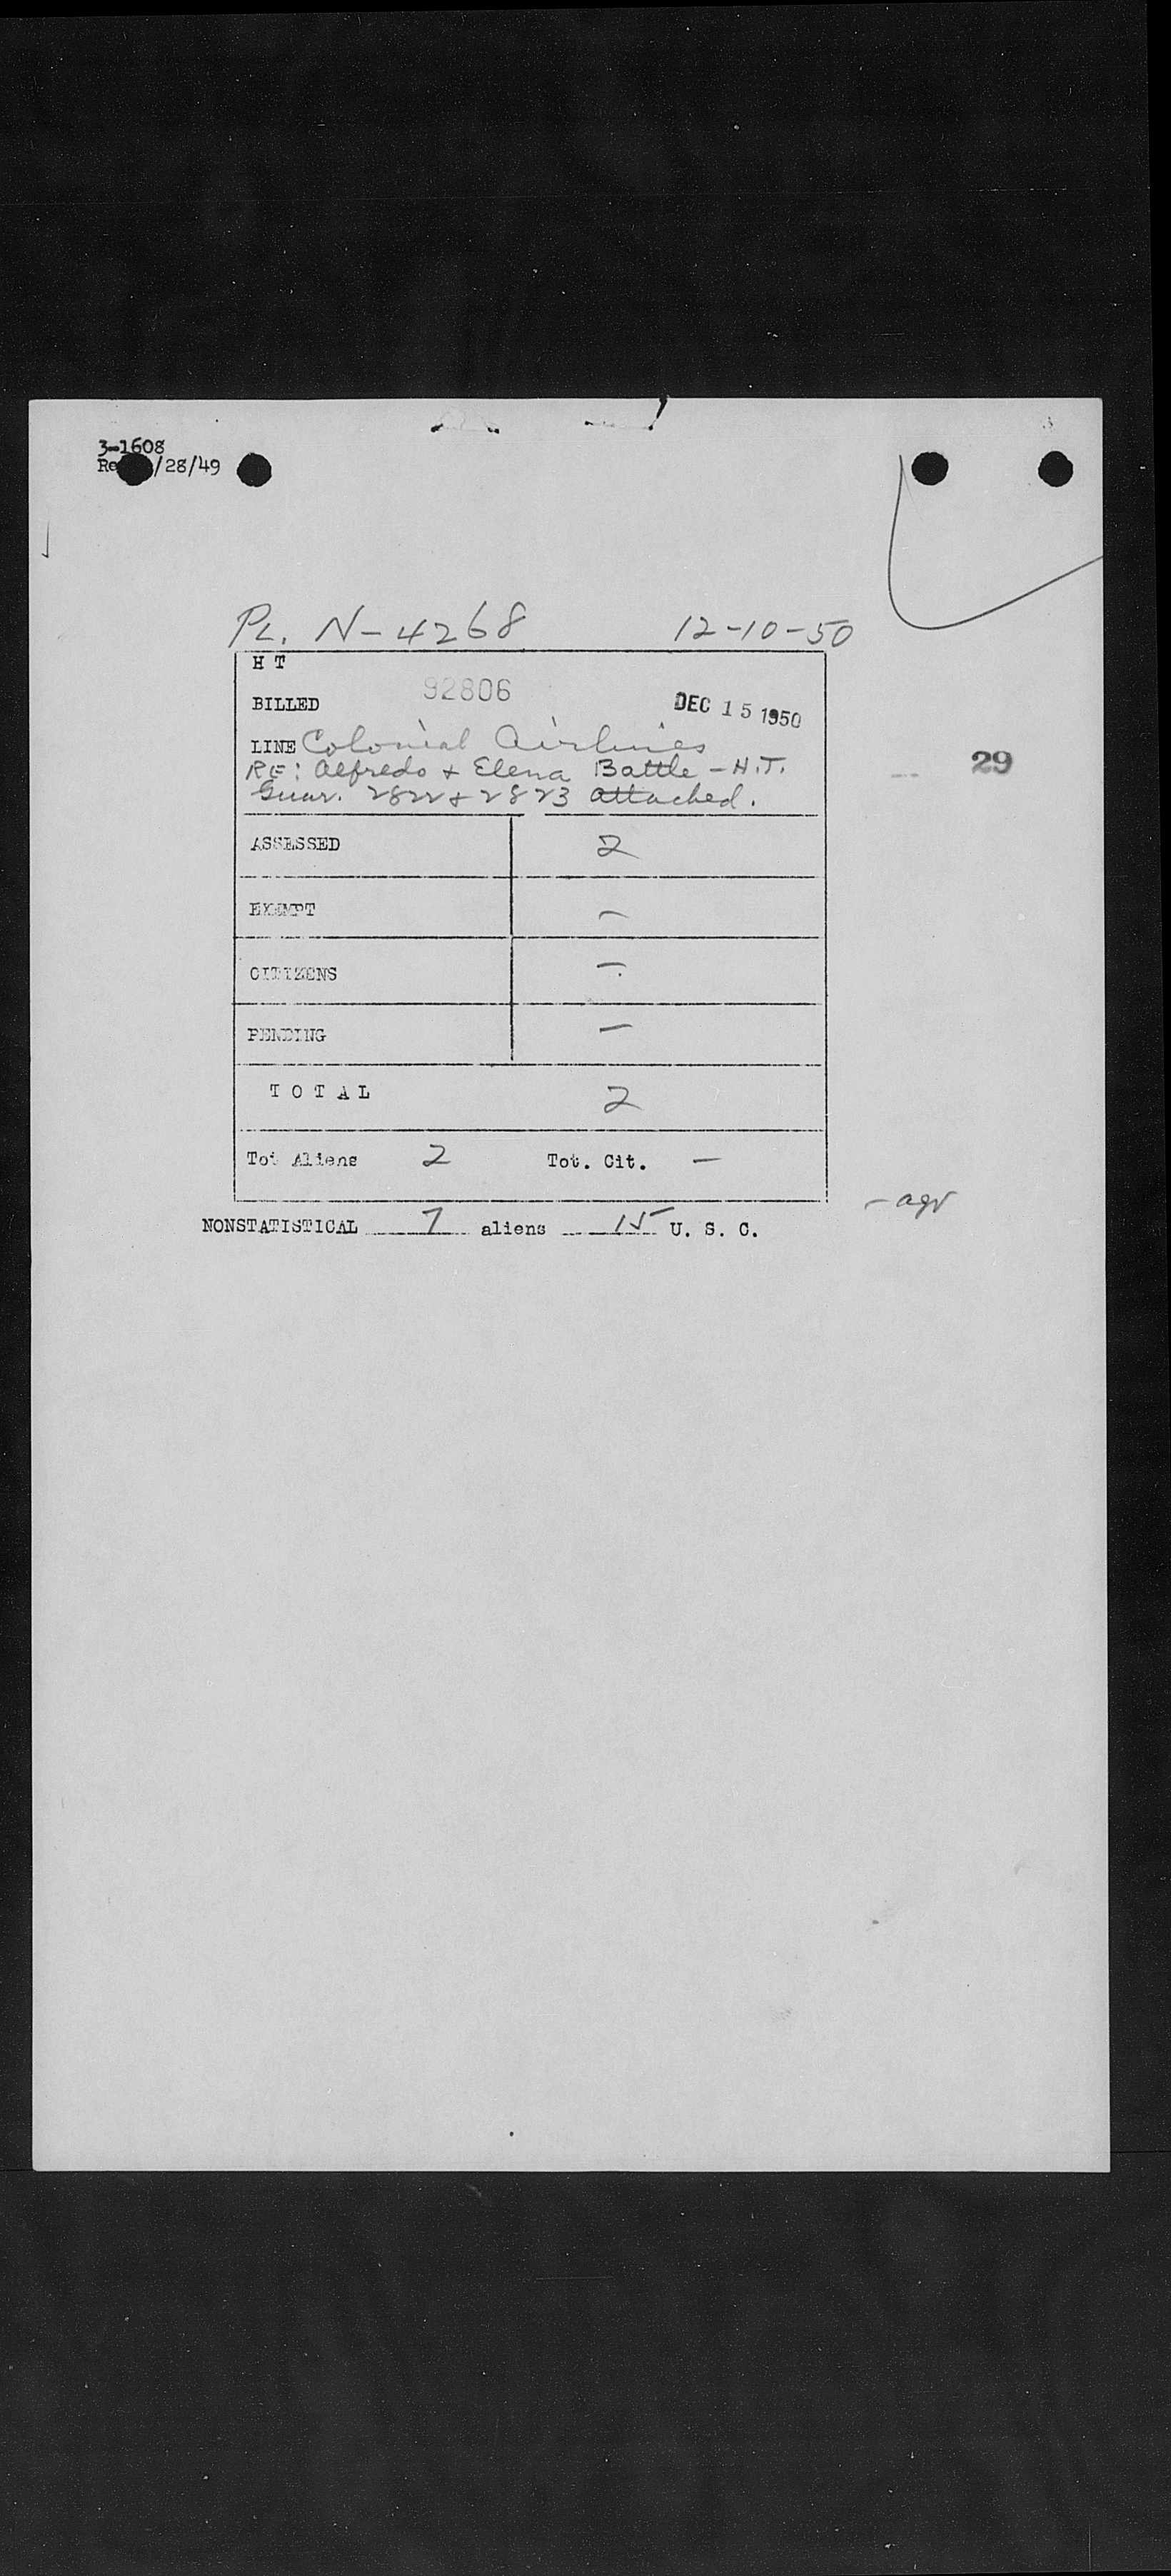 3-1608
/28/49
PL. N-4268 12-10-50
H T
BILLED 92806 DEC 15 1950
LINE Colonial Airlines
RE: Alfredo + Elena Battle - H.T. 29
Guar. 2822 + 2823 attached.
ASSESSED 2
EXEMPT -
CITIZENS -
PENDING -
T O T A L 2
Tot Aliens 2 Tot. Cit. -
- agr
NONSTATISTICAL 7 aliens 15 U. S. C.